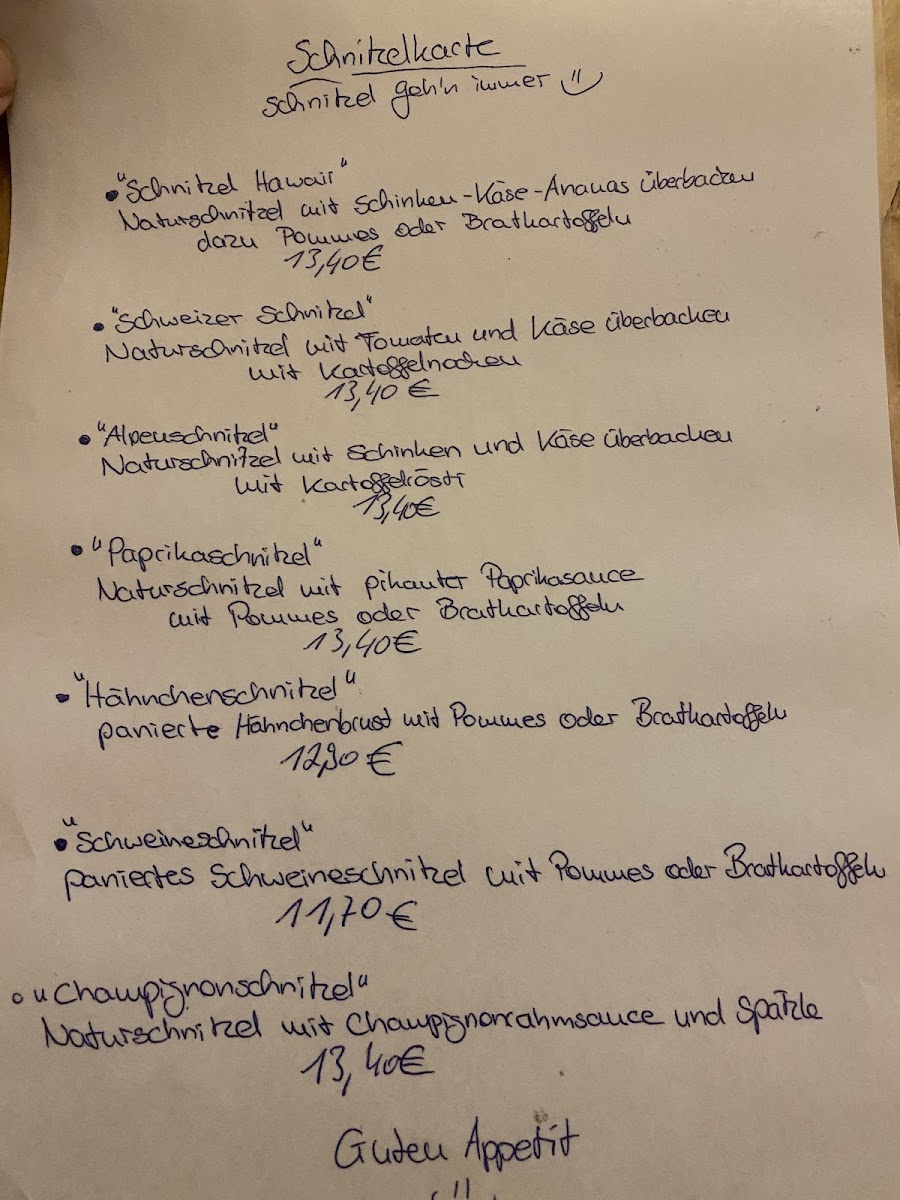 Schnitzelkarte
schnitzel geh'n immer
• "Schnitzel Hawaii"
Naturschnitzel mit Schinken-Käse-Ananas überbacken
dazu Pommes oder Bratkartoffeln
13,40€
• "Schweizer Schnitzel"
Naturschnitzel mit Tomaten und Käse überbacken
mit Kartoffelnocken
13,40 €
• "Alpenschnitzel"
Naturschnitzel mit Schinken und Käse überbacken
mit Kartoffelrösti
13,40€
• "Paprikaschnitzel"
Naturschnitzel mit pikanter Paprikasauce
mit Pommes oder Bratkartoffeln
13,40€
• "Hähnchenschnitzel"
panierte Hähnchenbrust mit Pommes oder Bratkartoffeln
12,90 €
• "Schweineschnitzel"
paniertes Schweineschnitzel mit Pommes oder Bratkartoffeln
11,70 €
• "Champignonschnitzel"
Naturschnitzel mit Champignonrahmsauce und Spätzle
13,40€
Guten Appetit